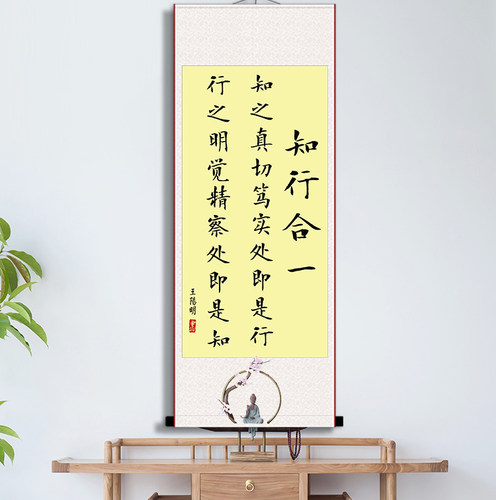 知行合一
知之真切笃实处即是行
行之明觉精察处即是知
王陽明